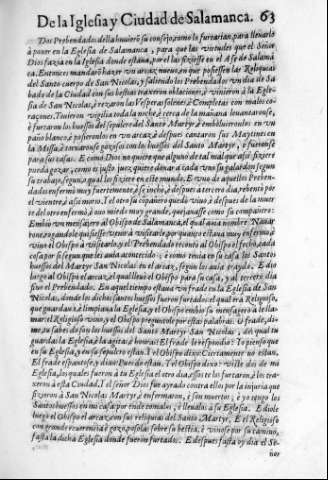 De la Iglesia y Ciudad de Salamanca. 63
Dos Prebendados della huuierō su consejo, como lo furtarian, para lleuarlo
à poner en la Eglesia de Salamanca, para que las virtudes que el Señor
Dios fazia en la Iglesia donde estaua, por el las fiziesse en el Ase de Salamā
ca. Entonces mandarō hazer vn arcaz nueuo, en que posiessen las Reliquias
del Santo cuerpo de San Nicolas, è saliendo los Prebendados vn dia de Sa
bado de la Ciudad con sus bestias traxeron oblaciones, è vinieron à la Egle-
sia de San Nicolas, è rezaron las Vesperas solenes, è Completas con malos co-
raçones. Tuuieron vigilia toda la noche, è cerca de la mañana leuantaronse,
è furtaron los huessos del sepulcro del Santo Martyr, è emboluieronlos en vn
paño blanco, è posieronlos en vn arcaz, è despues cantaron sus Maytines en
la Missa, è tornaronse gozosos con los huessos del Santo Martyr, è fueronse
para sus casas. E como Dios no quiere que alguno de tal mal que assi fiziere
pueda gozar, como es justo juez, quiere denar à cada vno su galardon segun
su trabajo, segun a qual lo fiziere en este mundo. E vno de aquellos Preben-
dados enfermò muy fuertemente, è se inchò, è despues à tercero dia, rebentò por
el vientre, è assi moro. Y el otro su compañero quedò viuo, è despues de la muer
te del otro enfermò, è auo miedo muy grande, quexandose como su compañero:
Embiò vn mensajero al Obispo de Salamanca, el qual auia nombre Naua-
rone, rogandole quisiesse venir à visitarle, por quanto estaua muy enfermo, è
vino el Obispo à visitarlo, y el Prebendado recontò al Obispo el fecho, cada
cosa por si segun que les auia acontecido: è como tenia en su casa los Santos
huessos del Martyr San Nicolas en el arcaz, segun los auia traydo. E dio
luego al Obispo el arcaz, el qual lleuò el Obispo para su casa, y al tercero dia
fiuo el Prebendado. En aquel tiempo estaua vn frade en la Eglesia de San
Nicolas, donde los dichos santos huessos fueron furtados: el qual era Religioso,
que guardaua, è limpiaua la Eglesia, y el Obispo embio su mensagero à lla-
mar el Religioso vino, y el Obispo preguntole por estas palabras. O frade, di-
me, tu sabes de fiu y los huessos del Santo Martyr San Nicolas, del qual tu
guardas la Eglesia, è la agita, è honras: El frade le respondio: Yo pienso que
en su Eglesia, y en su sepulcro estan. Y el Obispo dixo: Ciertamente no estan,
El frade espantose, y dixo: Pues do estan. Y el Obispo dixo: velle ahi de mi
Eglesia, los quales fueron à tu Eglesia el otro dia, essos te los furtaron, è los tra-
xeron à esta Ciudad. Y el señor Dios fue ayrado contra ellos por la injuria que
fizieron à San Nicolas Martyr, è enfermaron, è son muertos, è yo tengo los
Santos huessos en mi casa por ende tomalos, è lleualos à su Eglesia. E diole
luego el Obispo el arcaz, con sus reliquias del Santo Martyr, E el Religioso
con grande reuerencia è gozo, posolas sobre su bestia, è vinose por su camino,
fasta la dicha Eglesia donde fueron furtados. E despues fasta oy dia el Se-
ñor